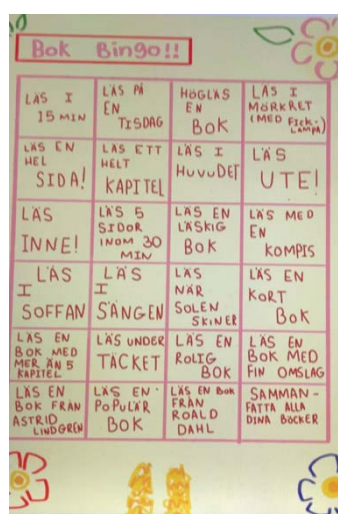 Bok Bingo!!
LÄS I
15 MIN
LÄS PÅ
EN
TISDAG
HÖGLÄS
EN
BOK
LÄS I
MÖRKRET
(MED FICK-
LAMPA)
LÄS EN
HEL
SIDA!
LÄS ETT
HELT
KAPITEL
LÄS I
HUVUDET
LÄS
UTE!
LÄS
INNE!
LÄS 5
SIDOR
INOM 30
MIN
LÄS EN
LÄSKIG
BOK
LÄS MED
EN
KOMPIS
LÄS
I
SOFFAN
LÄS
I
SÄNGEN
LÄS
NÄR
SOLEN
SKINER
LÄS EN
KORT
BOK
LÄS EN
BOK MED
MER ÄN 5
KAPITEL
LÄS UNDER
TÄCKET
LÄS EN
ROLIG
BOK
LÄS EN
BOK MED
FIN OMSLAG
LÄS EN
BOK FRÅN
ASTRID
LINDGREN
LÄS EN
POPULÄR
BOK
LÄS EN BOK
FRÅN
ROALD
DAHL
SAMMAN-
FATTA ALLA
DINA BÖCKER